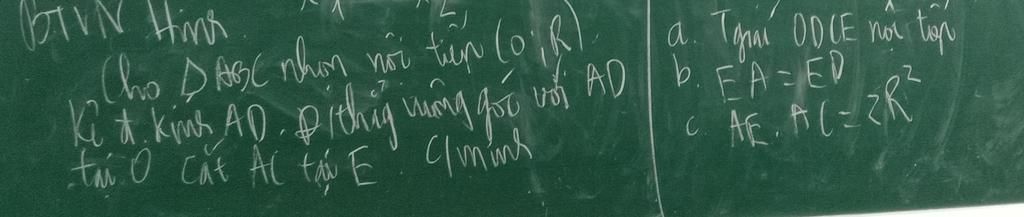 BTVN Hình.
Cho ΔABC nhọn nội tiếp (O;R).
Kẻ đ. kính AD. Đ/thẳng vuông góc với AD
tại O cắt AC tại E. C/minh
a. Tgiác ODCE nội tiếp
b. EA = ED
c. AE. AC = 2R²